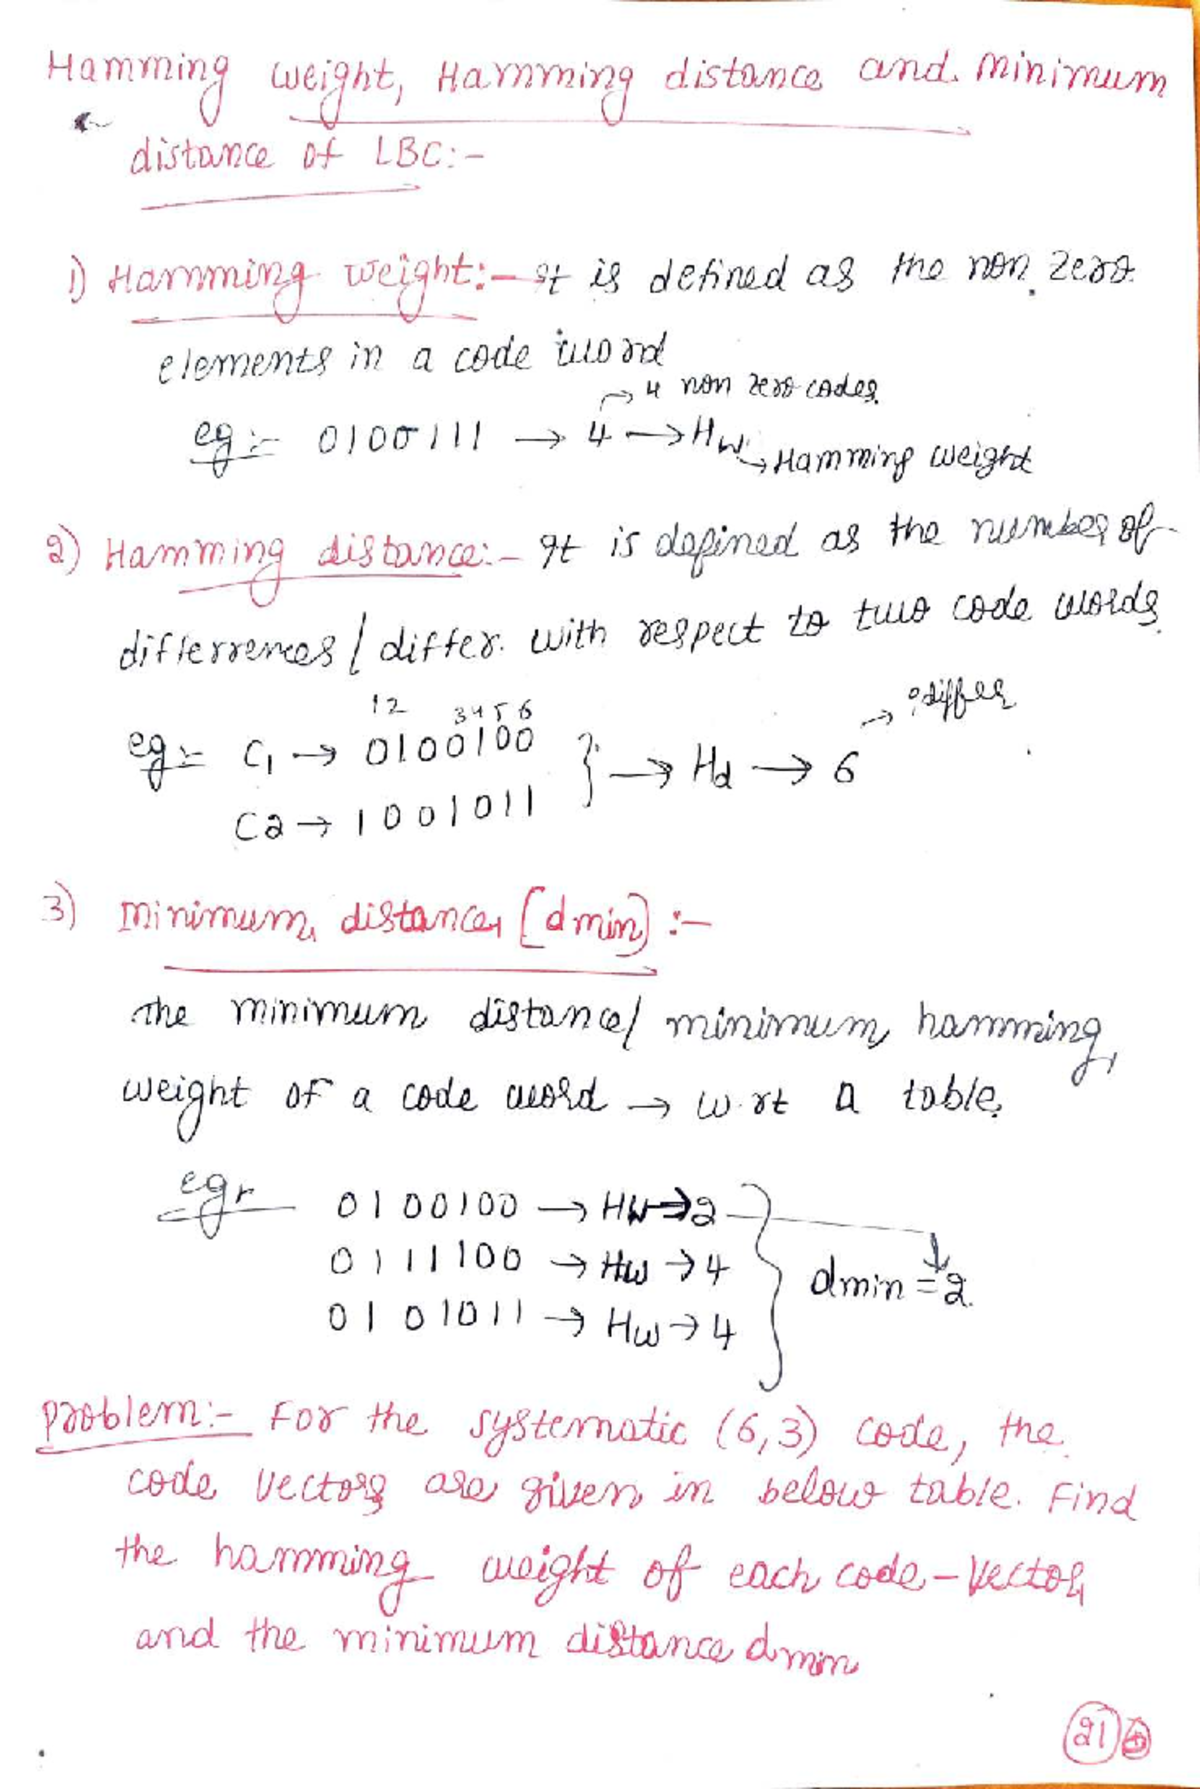 Hamming weight, Hamming distance and minimum
distance of LBC:-
1) Hamming weight:- It is defined as the non zero
elements in a code word
→ 4 non zero codes
eg:- 0100111 → 4 → Hw
→ Hamming weight
2) Hamming distance:- It is defined as the number of
differrences / differ. with respect to two code words
1 2 3 4 5 6
→ differ
eg:- C1 → 0100100 } → Hd → 6
C2 → 1001011
3) Minimum distance, [dmin] :-
The minimum distance/ minimum hamming
weight of a code word → w.rt A table.
eg:-
0100100 → Hw → 2
0111100 → Hw → 4 } dmin = 2
0101011 → Hw → 4
Problem:- For the systematic (6,3) code, the
code vectors are given in below table. Find
the hamming weight of each code-vector,
and the minimum distance dmin
21